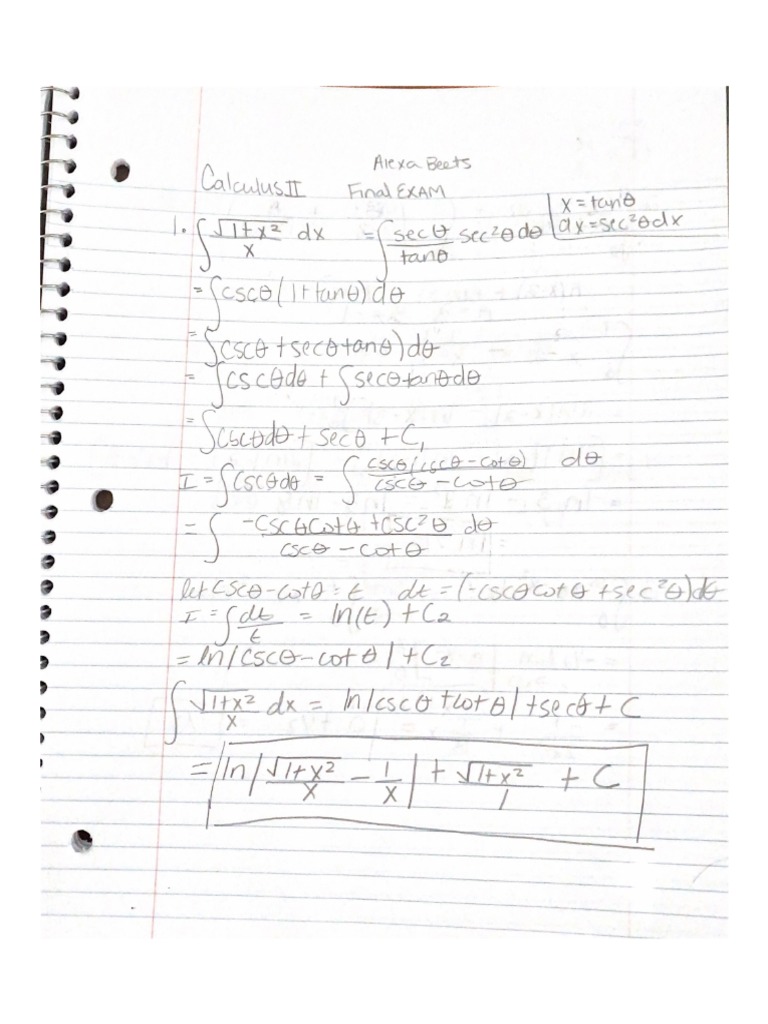 Alexa Beets
Calculus II Final EXAM
1. ∫ √(1+x²)/x dx = ∫ secθ/tanθ sec²θ dθ | x = tanθ
dx = sec²θ dx
= ∫ cscθ (1+tanθ) dθ
= ∫ cscθ + secθ tanθ) dθ
= ∫ cscθ dθ + ∫ secθ tanθ dθ
= ∫ cscθ dθ + secθ + C₁
I = ∫ cscθ dθ = ∫ cscθ (cscθ - cotθ)/(cscθ - cotθ) dθ
= ∫ (-cscθ cotθ + csc²θ)/(cscθ - cotθ) dθ
let cscθ - cotθ = t dt = (-cscθ cotθ + sec²θ) dθ
I = ∫ dt/t = ln(t) + C₂
= ln|cscθ - cotθ| + C₂
∫ √(1+x²)/x dx = ln|cscθ + cotθ| + secθ + C
= ln|√(1+x²)/x - 1/x| + √(1+x²)/1 + C